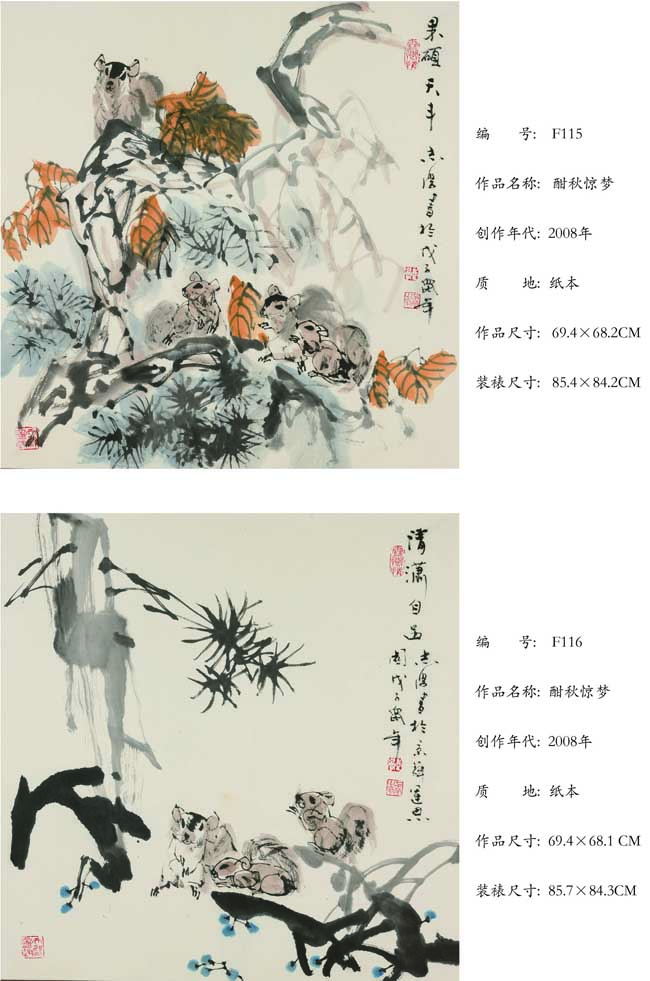 果硕天丰
志学画于戊子岁年
编 号: F115
作品名称: 酣秋惊梦
创作年代: 2008年
质 地: 纸本
作品尺寸: 69.4×68.2CM
装裱尺寸: 85.4×84.2CM
清潇自
编 号: F116
作品名称: 酣秋惊梦
创作年代: 2008年
质 地: 纸本
作品尺寸: 69.4×68.1 CM
装裱尺寸: 85.7×84.3CM